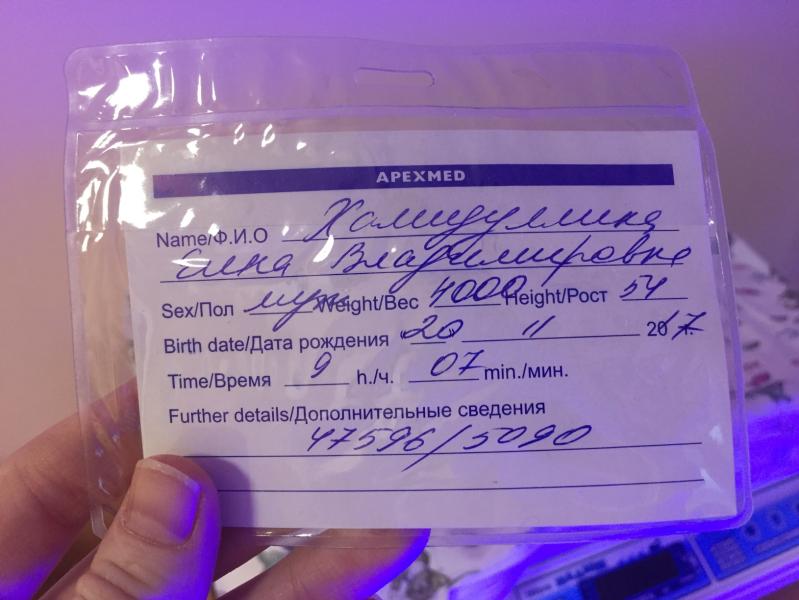 APEXMED
Name/Ф.И.О Хамидуллина
Владимировна
Sex/Пол муж Weight/Вес 4000 Height/Рост 54
Birth date/Дата рождения 20 11 2017г.
Time/Время 9 h./ч. 07 min./мин.
Further details/Дополнительные сведения
47596/5090